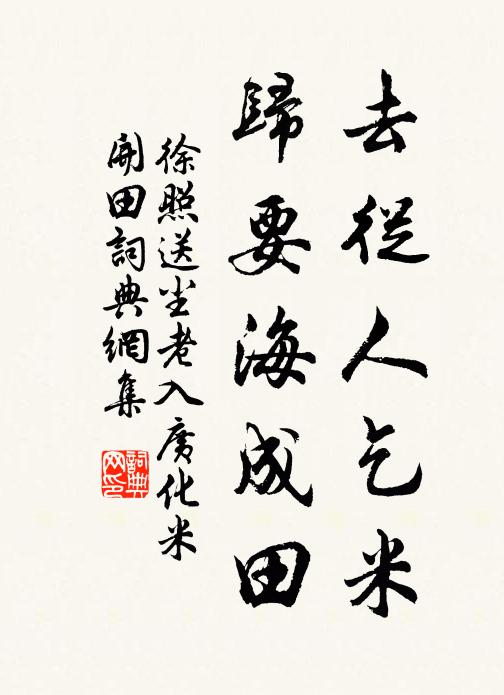 去從人乞米
歸要海成田
徐照送尘老入廣化米
開田詞典網集
詞典网印